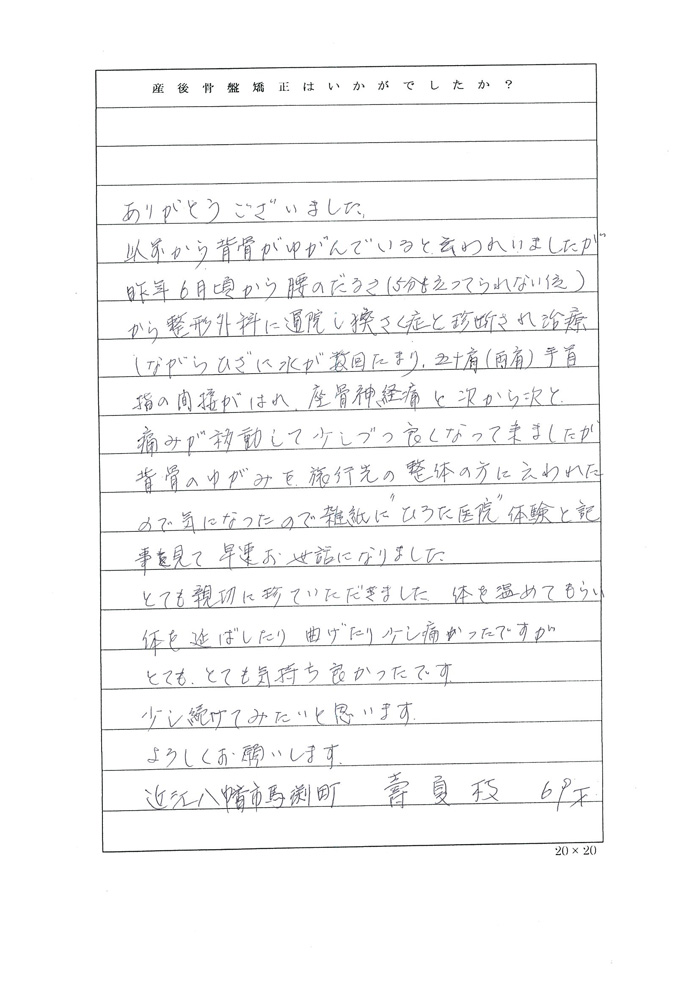 産後骨盤矯正はいかがでしたか？
ありがとうございました。
以前から背骨がゆがんでいると云われいましたが
昨年6月頃から腰のだるさ(5分も立ってられない位)
から整形外科に通院し狭さく症と診断され治療
しながらひざに水が数回たまり、五十肩(両肩)手首
指の間接がはれ、座骨神経痛と次から次と、
痛みが移動して少しづつ良くなって来ましたが
背骨のゆがみを旅行先の整体の方に云われた
ので気になったので雑紙に"ひろた医院"体験と記
事を見て早速お世話になりました。
とても親切に珍ていただきました 体を温めてもらい
体を延ばしたり曲げたり少し痛かったですが
とても、とても気持ち良かったです。
少し続けてみたいと思います。
よろしくお願いします。
近江八幡市馬渕町 壽 枝 69才
20×20